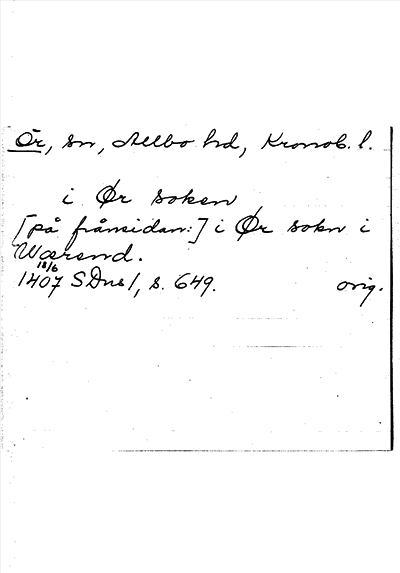 Ör, sn, Allbo hd, Kronob. l.
i Ør soken
[på frånsidan:] i Ør sokn i
Wærend.
18/6
1407 SDns 1, s. 649. orig.